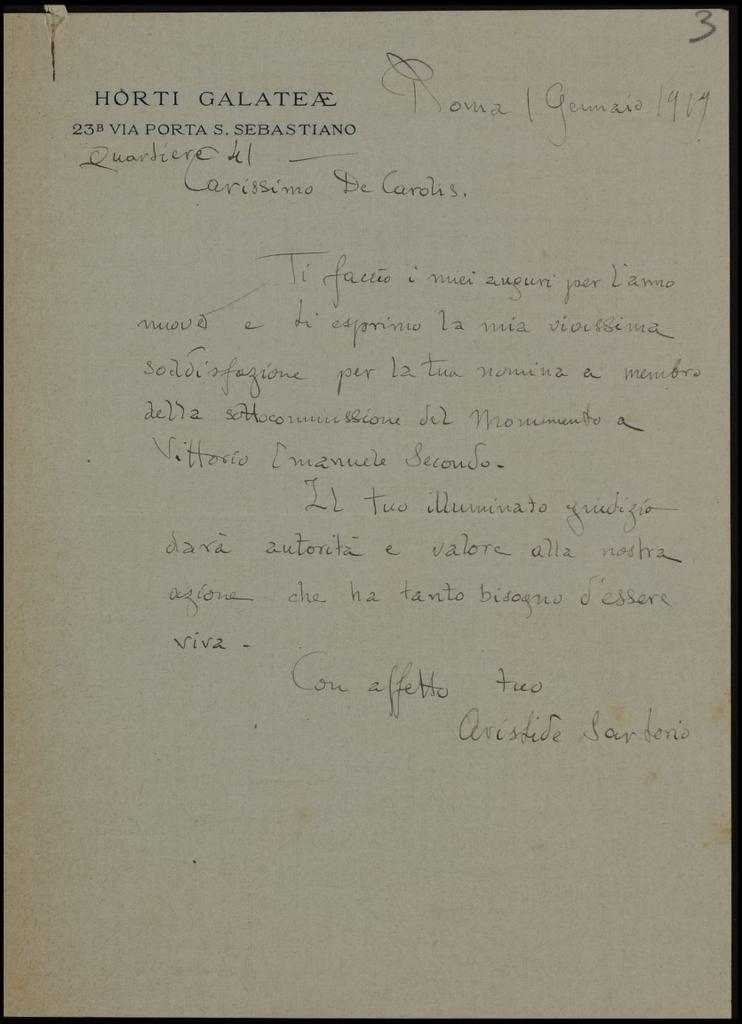 3
HORTI GALATEÆ
23B VIA PORTA S. SEBASTIANO
Quartiere 41
Roma 1 Gennaio 1919
Carissimo De Carolis.
Ti faccio i miei auguri per l'anno
nuovo e ti esprimo la mia vivissima
soddisfazione per la tua nomina a membro
della sottocommissione del Monumento a
Vittorio Emanuele Secondo.
Il tuo illuminato giudizio
darà autorità e valore alla nostra
azione che ha tanto bisogno d'essere
viva.
Con affetto tuo
Aristide Sartorio